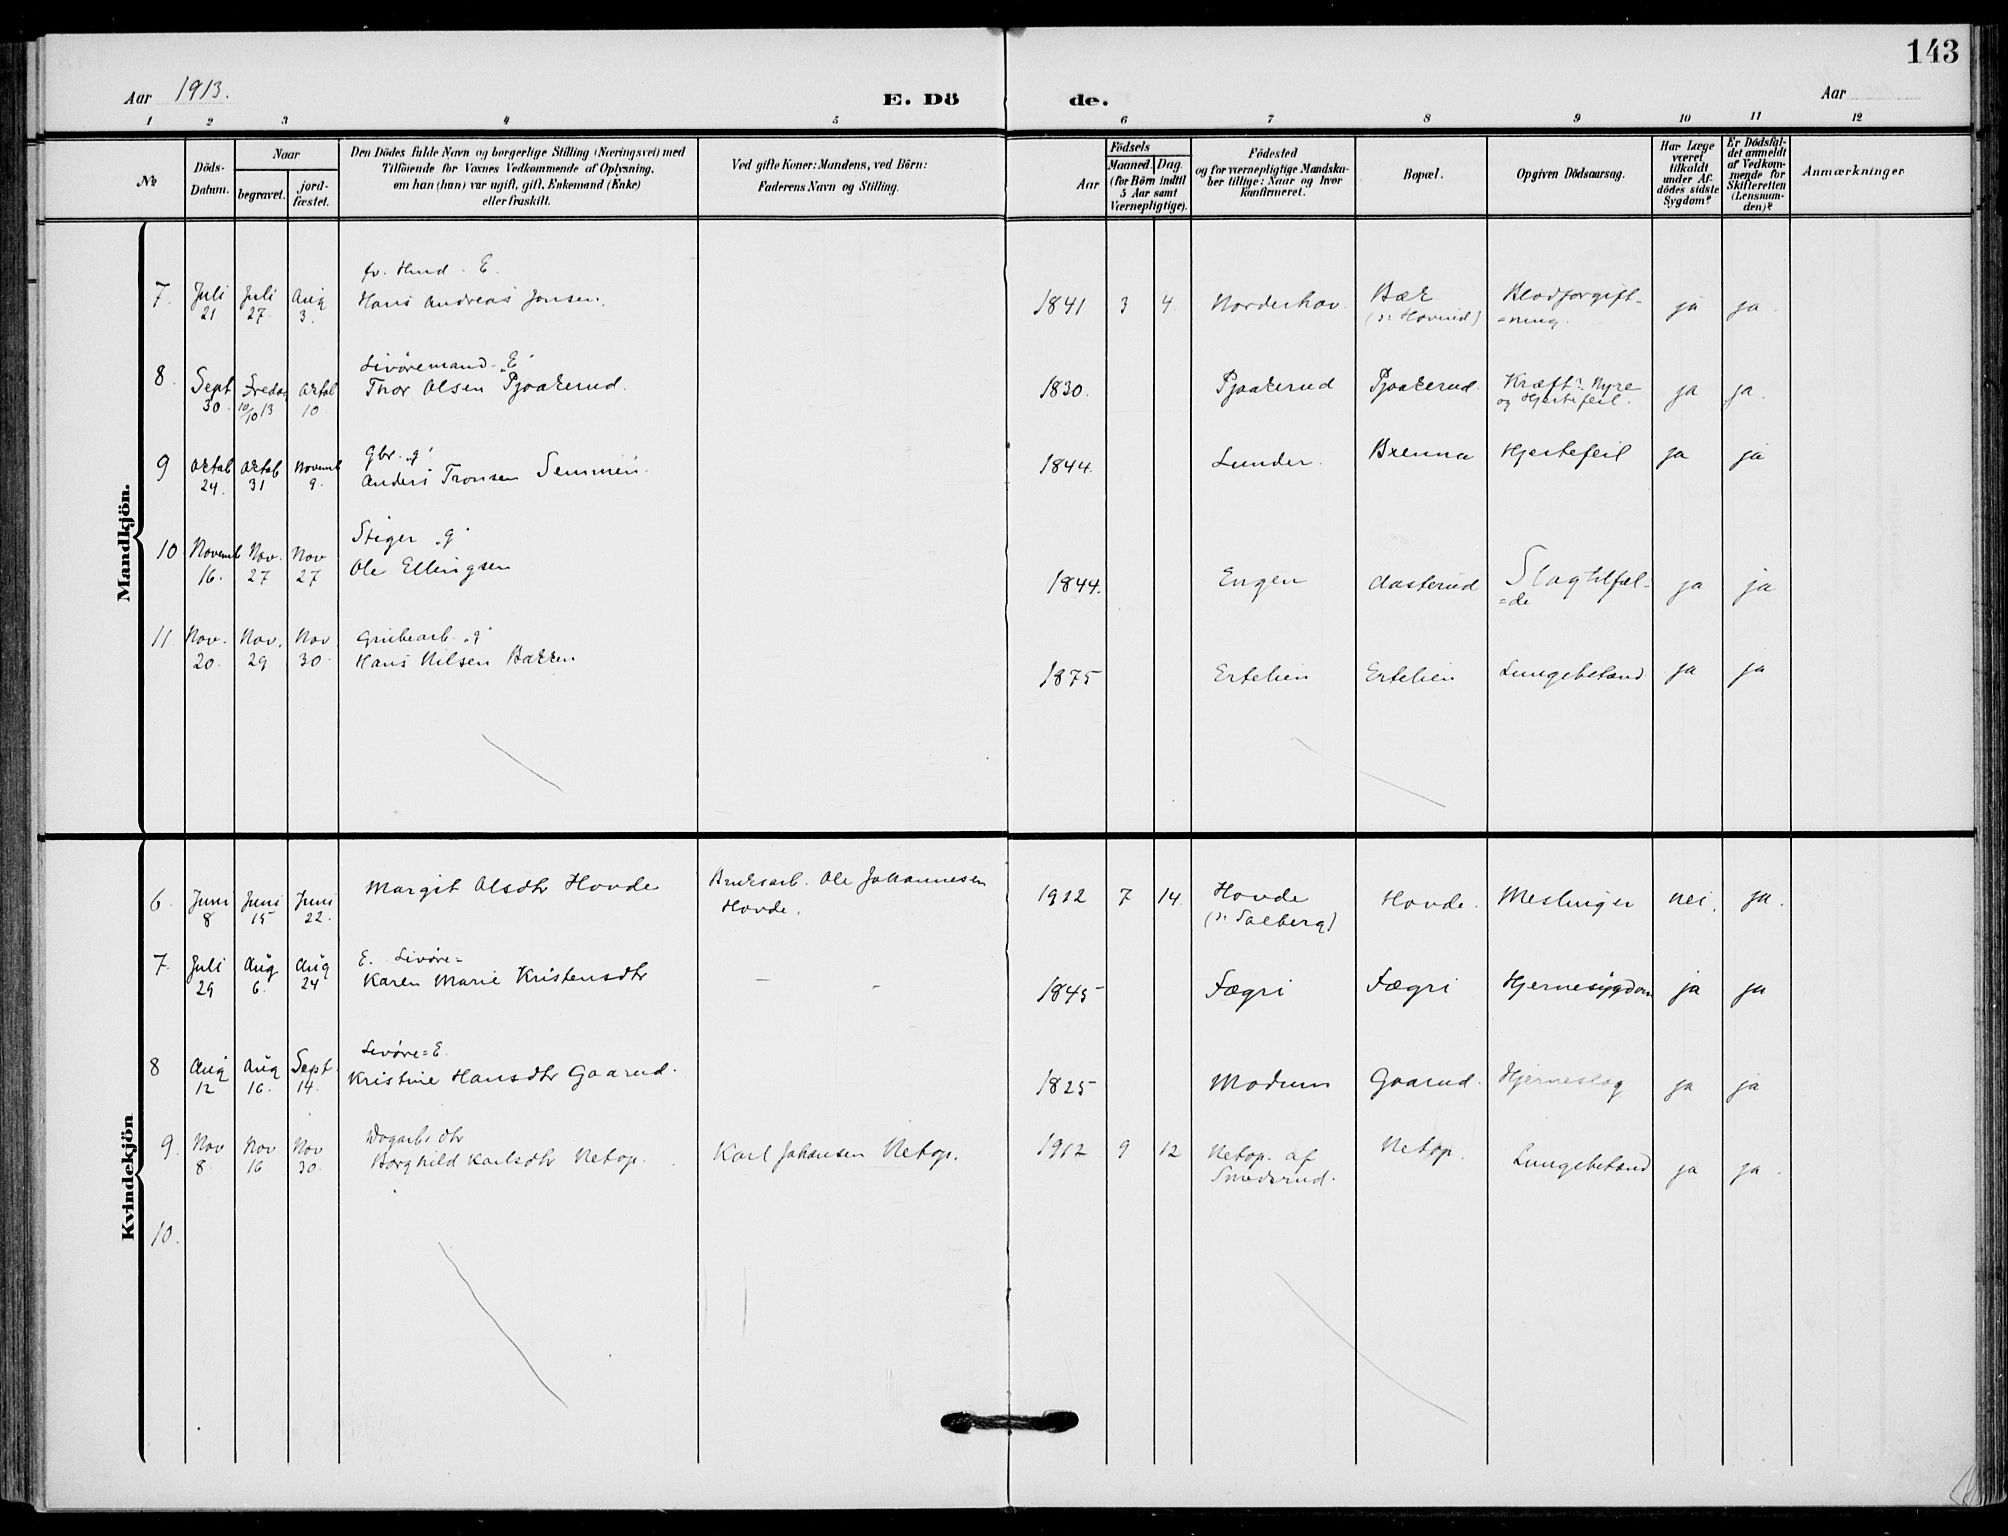 143
Aar 1913.
E. Dö
de.
Aar
1 2 3 4 5 6 7 8 9 10 11 12
No
Döds-Datum.
Naar
begravet.
jord-fæstet.
Den Dödes fulde Navn og borgerlige Stilling (Næringsvei) med
Tilföiende for Voxnes Vedkommende af Oplysning,
om han (hun) var ugift, gift, Enkemand (Enke)
eller fraskilt.
Ved gifte Koner: Mandens, ved Börn:
Faderens Navn og Stilling.
Födsels
Aar
Maaned. Dag.
(for Börn indtil
5 Aar samt
Værnepligtige).
Födested
og for værnepligtige Mandska-
ber tillige: Naar og hvor
konfirmeret.
Bopæl.
Opgiven Dödsaarsag.
Har Læge
været
tilkaldt
under Af-
dödes sidste
Sygdom?
Er Dödsfal-
det anmeldt
af Vedkom-
mende for
Skifteretten
(Lensman-
den)?
Anmærkninger
Mandkjön.
fv. Hmd. E.
7. Juli 21 Juli 27. Aug 3. Hans Andreas Jonsen. 1841 3 4. Norderhov. Bæk (ɔ: Hovrud) Blodforgift-
=ning. ja ja.
Livöremand "E"
8. Sept 30. Fredag 10/10 13 Oktob 10. Thor Olsen Pjaakerud. 1830. Pjaakerud Pjaakerud. Kræft? Nyre
og Hjertefeil. ja ja.
Gbr. "g"
9 Oktob 24. Oktob 31 Novemb 9. Anders Tronsen Semmen. 1844. Lunder. Brenna Hjertefeil ja ja
Stiger "g"
10 Novemb 16. Nov. 27 Nov 27 Ole Ellingsen 1844. Engen Aasterud Slagtilfæl-
=de ja ja
Grubearb. "g"
11. Nov. 20. Nov. 29 Nov 30. Hans Nilsen Bakken 1875 Ertelien Ertelien Lungebetænd ja ja
Kvindekjön
6. Juni 8 Juni 15 Juni 22. Margit Olsdtr Hovde Bruksarb. Ole Johannesen
Hovde. 1912 7 14. Hovde
(ɔ: Solberg) Hovde. Meslinger nei. ja.
E. Livöre=
7. Juli 29 Aug 6. Aug 24 Karen Marie Kristensdtr - - 1845 Fægri Fægri Hjernesygdom ja ja
Livöre=E.
8 Aug 12 Aug 16. Sept. 14. Kristine Hansdtr Gaarud. 1825 Modum Gaarud. Hjerneslag ja ja
Dagarb. dtr
9. Nov 8. Nov 16 Nov 30. Borghild Karlsdtr Netop. Karl Johansen Netop. 1912 9 12 Netop. af
Smedsrud. Netop. Lungebetænd ja ja.
10.